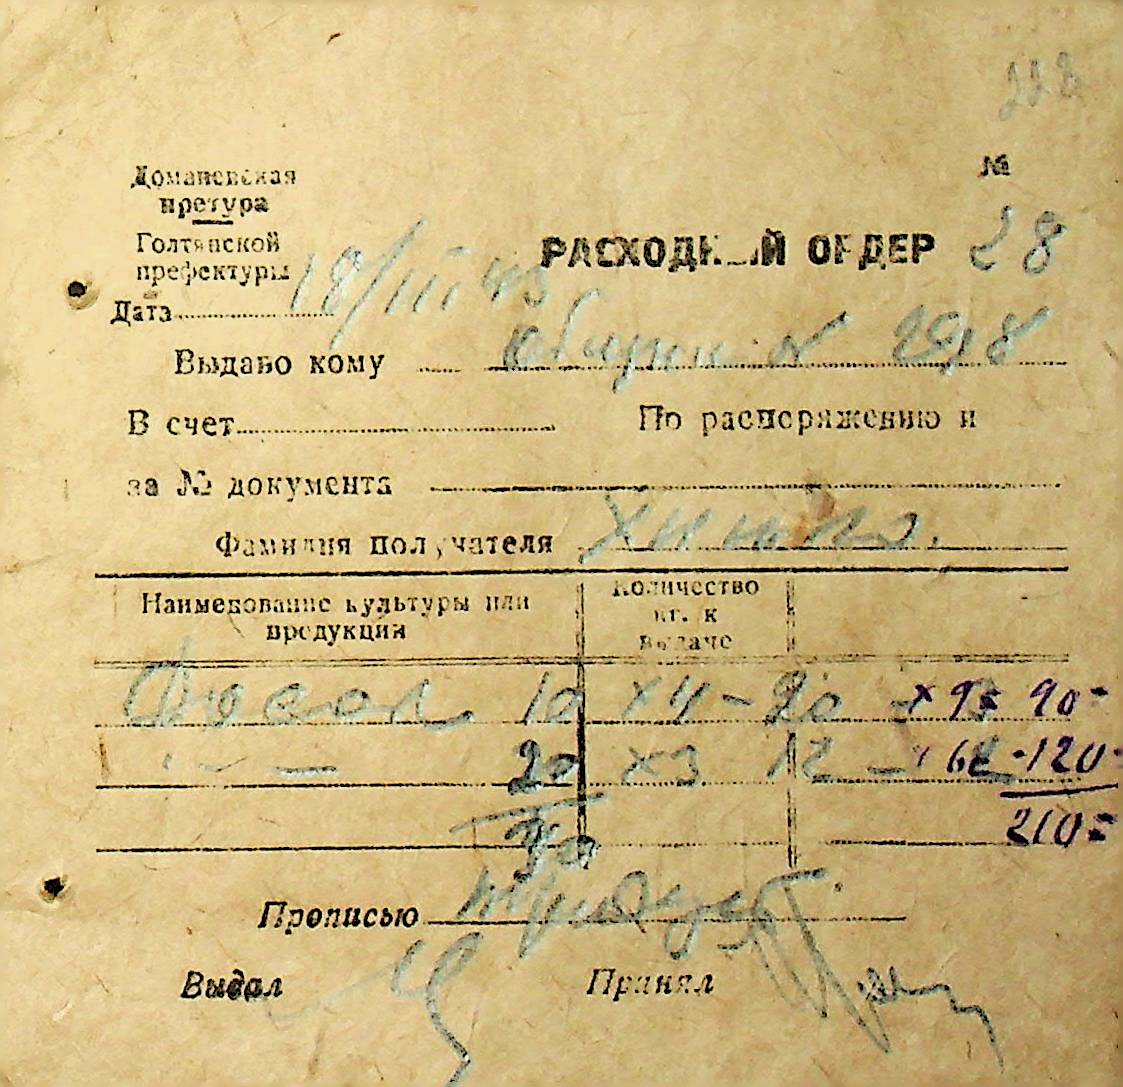 228
Доманевская
претура
Голтянской
префектуры
№
РАСХОДНЫЙ ОРДЕР 28
Дата 18/III 43
Выдано кому
В счет По распоряжению и
за № документа
Фамилия получателя
Наименование культуры или продукции Количество кг. к выдаче
Фасол 10 х4 - х 9= 90=
20 х3 12 - -120=
30 210=
Прописью тридцать
Выдал Принял